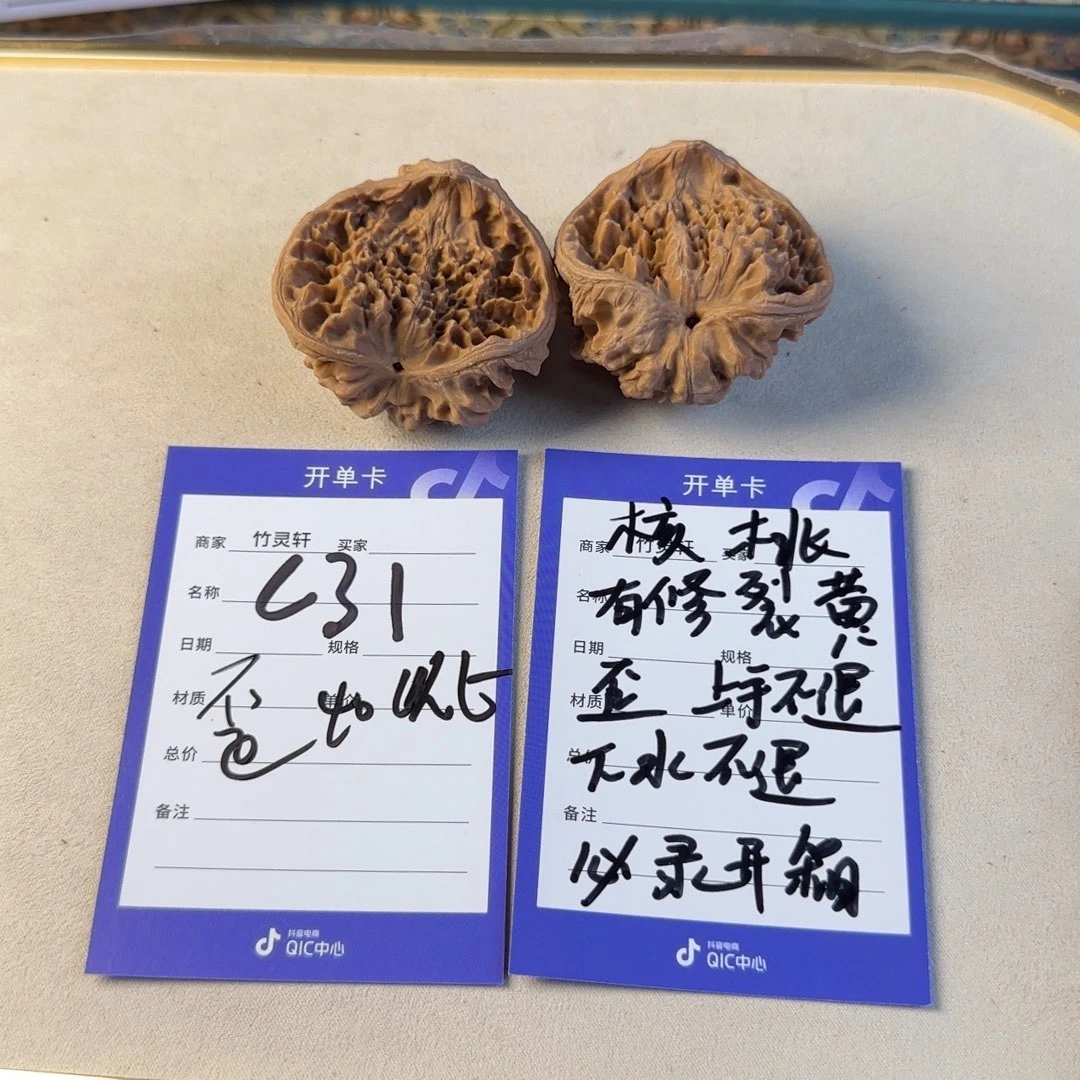 开单卡
商家 竹灵轩 买家
名称 C31
日期 规格
材质 歪
总价
备注
抖音电商
QIC中心
开单卡
核桃
商家 竹灵轩 买家
有修裂黄
名称
日期 规格
歪 上手不退
材质 单价
下水不退
总价
备注
必录开箱
抖音电商
QIC中心